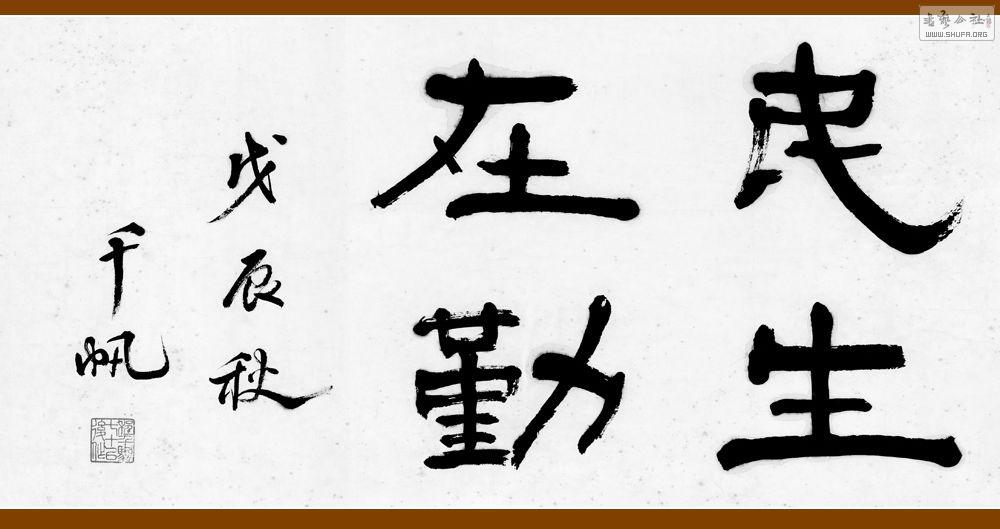 民生
在勤
戊辰秋
千帆
书艺公社
WWW.SHUFA.ORG